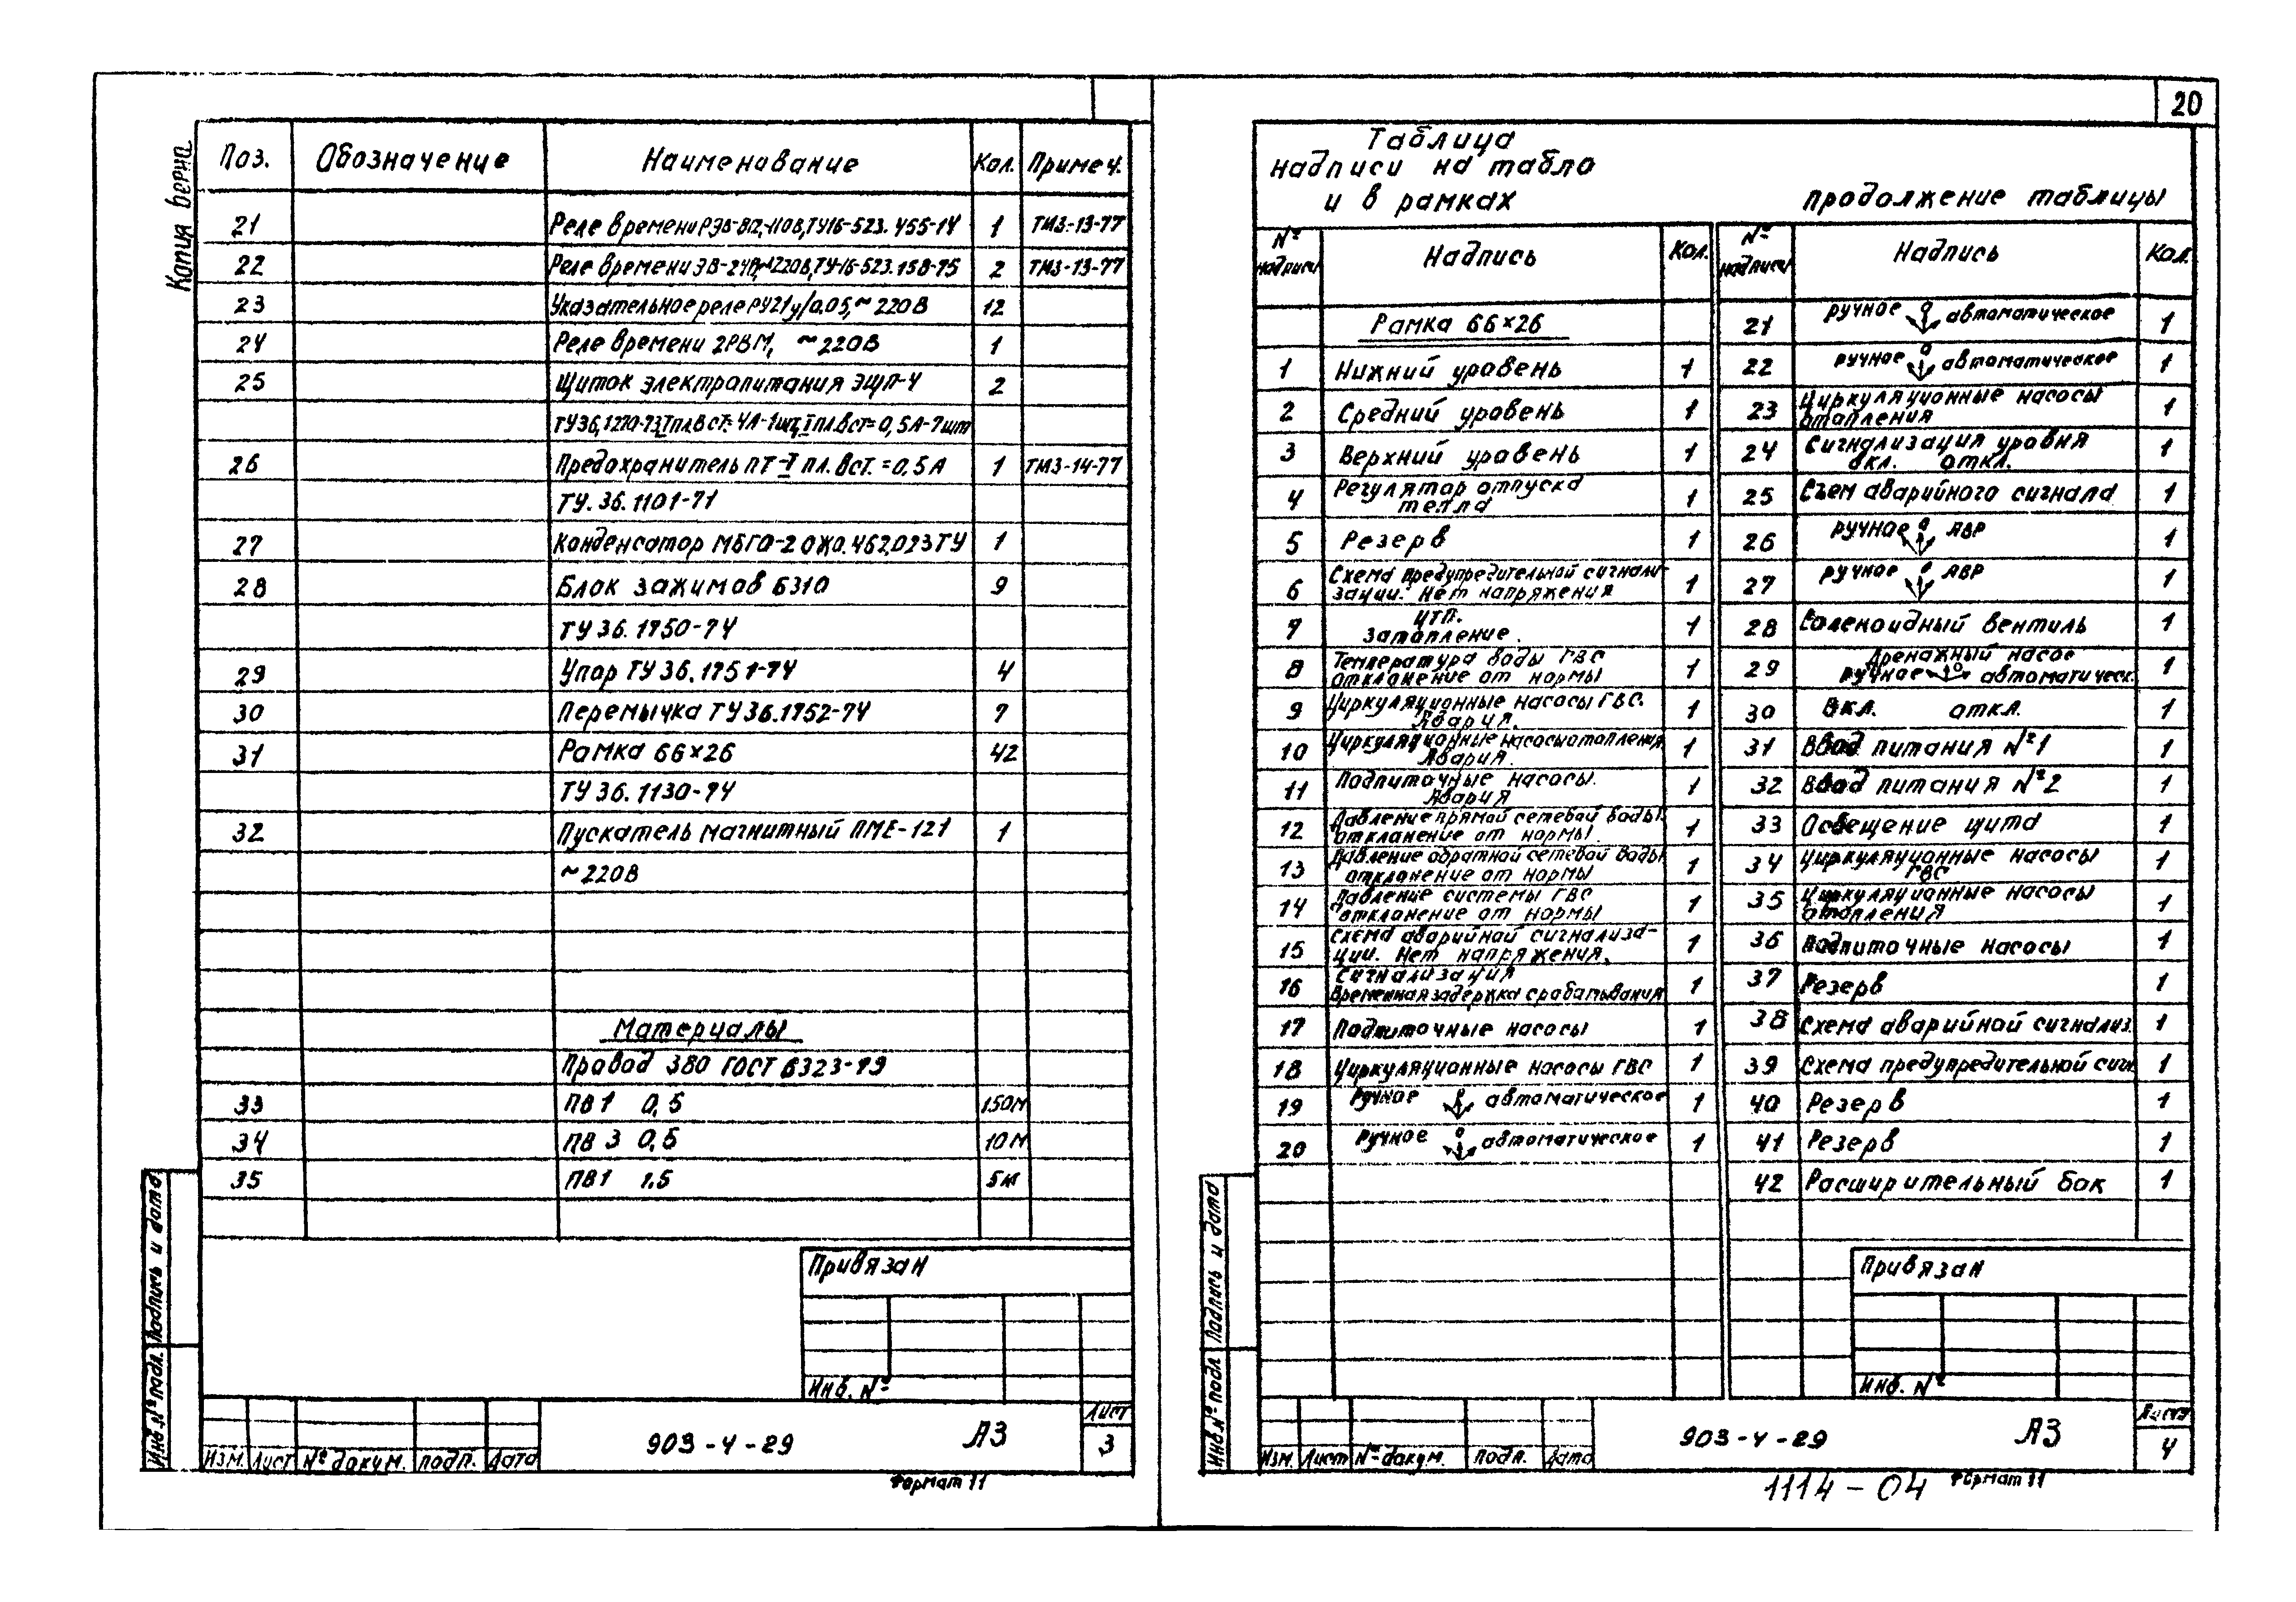 20
Копия верна
Поз. Обозначение Наименование Кол. Примеч.
21 Реле времени РЭВ-812,~110В, ТУ16-523.455-74 1 ТМ3-13-77
22 Реле времени ЭВ-248,~220В, ТУ-16-523.158-75 2 ТМ3-13-77
23 Указательное реле РУ21у/0.05,~220В 12
24 Реле времени 2РВМ, ~220В 1
25 Щиток электропитания ЭЩП-4 2
ТУ36.1270-73, I пл.вст.=4А-1шт, I пл.вст=0,5А-7шт
26 Предохранитель ПТ-I пл. вст.=0,5А 1 ТМ3-14-77
ТУ.36.1101-71
27 Конденсатор МБГО-2 ОЖО.462.023ТУ 1
28 Блок зажимов БЗ10 9
ТУ36.1750-74
29 Упор ТУ36.1751-74 4
30 Перемычка ТУ36.1752-74 7
31 Рамка 66×26 42
ТУ36.1130-74
32 Пускатель магнитный ПМЕ-121 1
~220В
Материалы
Провод 380 ГОСТ 6323-79
33 ПВ1 0,5 150м
34 ПВ3 0,5 10м
35 ПВ1 1.5 5м
Привязан
Инв. №
Изм. Лист № докум. подп. Дата
903-4-29 А3 Лист 3
Формат 11
Инв.№ подл. Подпись и дата
Таблица
надписи на табло
и в рамках
продолжение таблицы
№ надписи Надпись Кол.
Рамка 66×26
1 Нижний уровень 1
2 Средний уровень 1
3 Верхний уровень 1
4 Регулятор отпуска
тепла 1
5 Резерв 1
6 Схема предупредительной сигнали-
зации. Нет напряжения 1
7 ЦТП.
Затопление. 1
8 Температура воды ГВС
отклонение от нормы 1
9 Циркуляционные насосы ГВС.
Авария. 1
10 Циркуляционные насосы отопления
Авария. 1
11 Подпиточные насосы.
Авария 1
12 Давление прямой сетевой воды
отклонение от нормы 1
13 Давление обратной сетевой воды
отклонение от нормы 1
14 Давление системы ГВС
отклонение от нормы 1
15 Схема аварийной сигнализа-
ции. Нет напряжения. 1
16 Сигнализация
Временная задержка срабатывания 1
17 Подпиточные насосы 1
18 Циркуляционные насосы ГВС 1
19 Ручное 0 автоматическое 1
20 Ручное 0 автоматическое 1
№ надписи Надпись Кол.
21 ручное 0 автоматическое 1
22 ручное 0 автоматическое 1
23 Циркуляционные насосы
отопления 1
24 Сигнализация уровня
вкл. откл. 1
25 Съем аварийного сигнала 1
26 ручное 0 АВР 1
27 ручное 0 АВР 1
28 Соленоидный вентиль 1
29 Дренажный насос
ручное 0 автоматическ. 1
30 Вкл. откл. 1
31 Ввод питания №1 1
32 Ввод питания №2 1
33 Освещение щита 1
34 Циркуляционные насосы
ГВС 1
35 Циркуляционные насосы
отопления 1
36 Подпиточные насосы 1
37 Резерв 1
38 Схема аварийной сигнализ. 1
39 Схема предупредительной сигн. 1
40 Резерв 1
41 Резерв 1
42 Расширительный бак 1
Привязан
Инв. №
Изм. Лист № докум. подп. Дата
903-4-29 А3 Лист 4
1114-04 Формат 11
Инв.№ подл. Подпись и дата